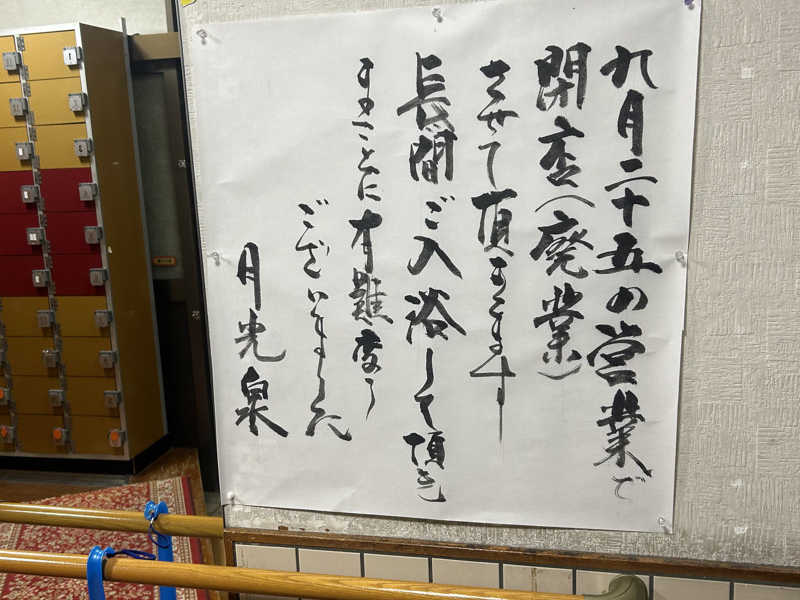 九月二十五の営業で
閉店(廃業)
させて頂きます
長間ご入浴して頂き
まことに有難度う
ございました
月光泉